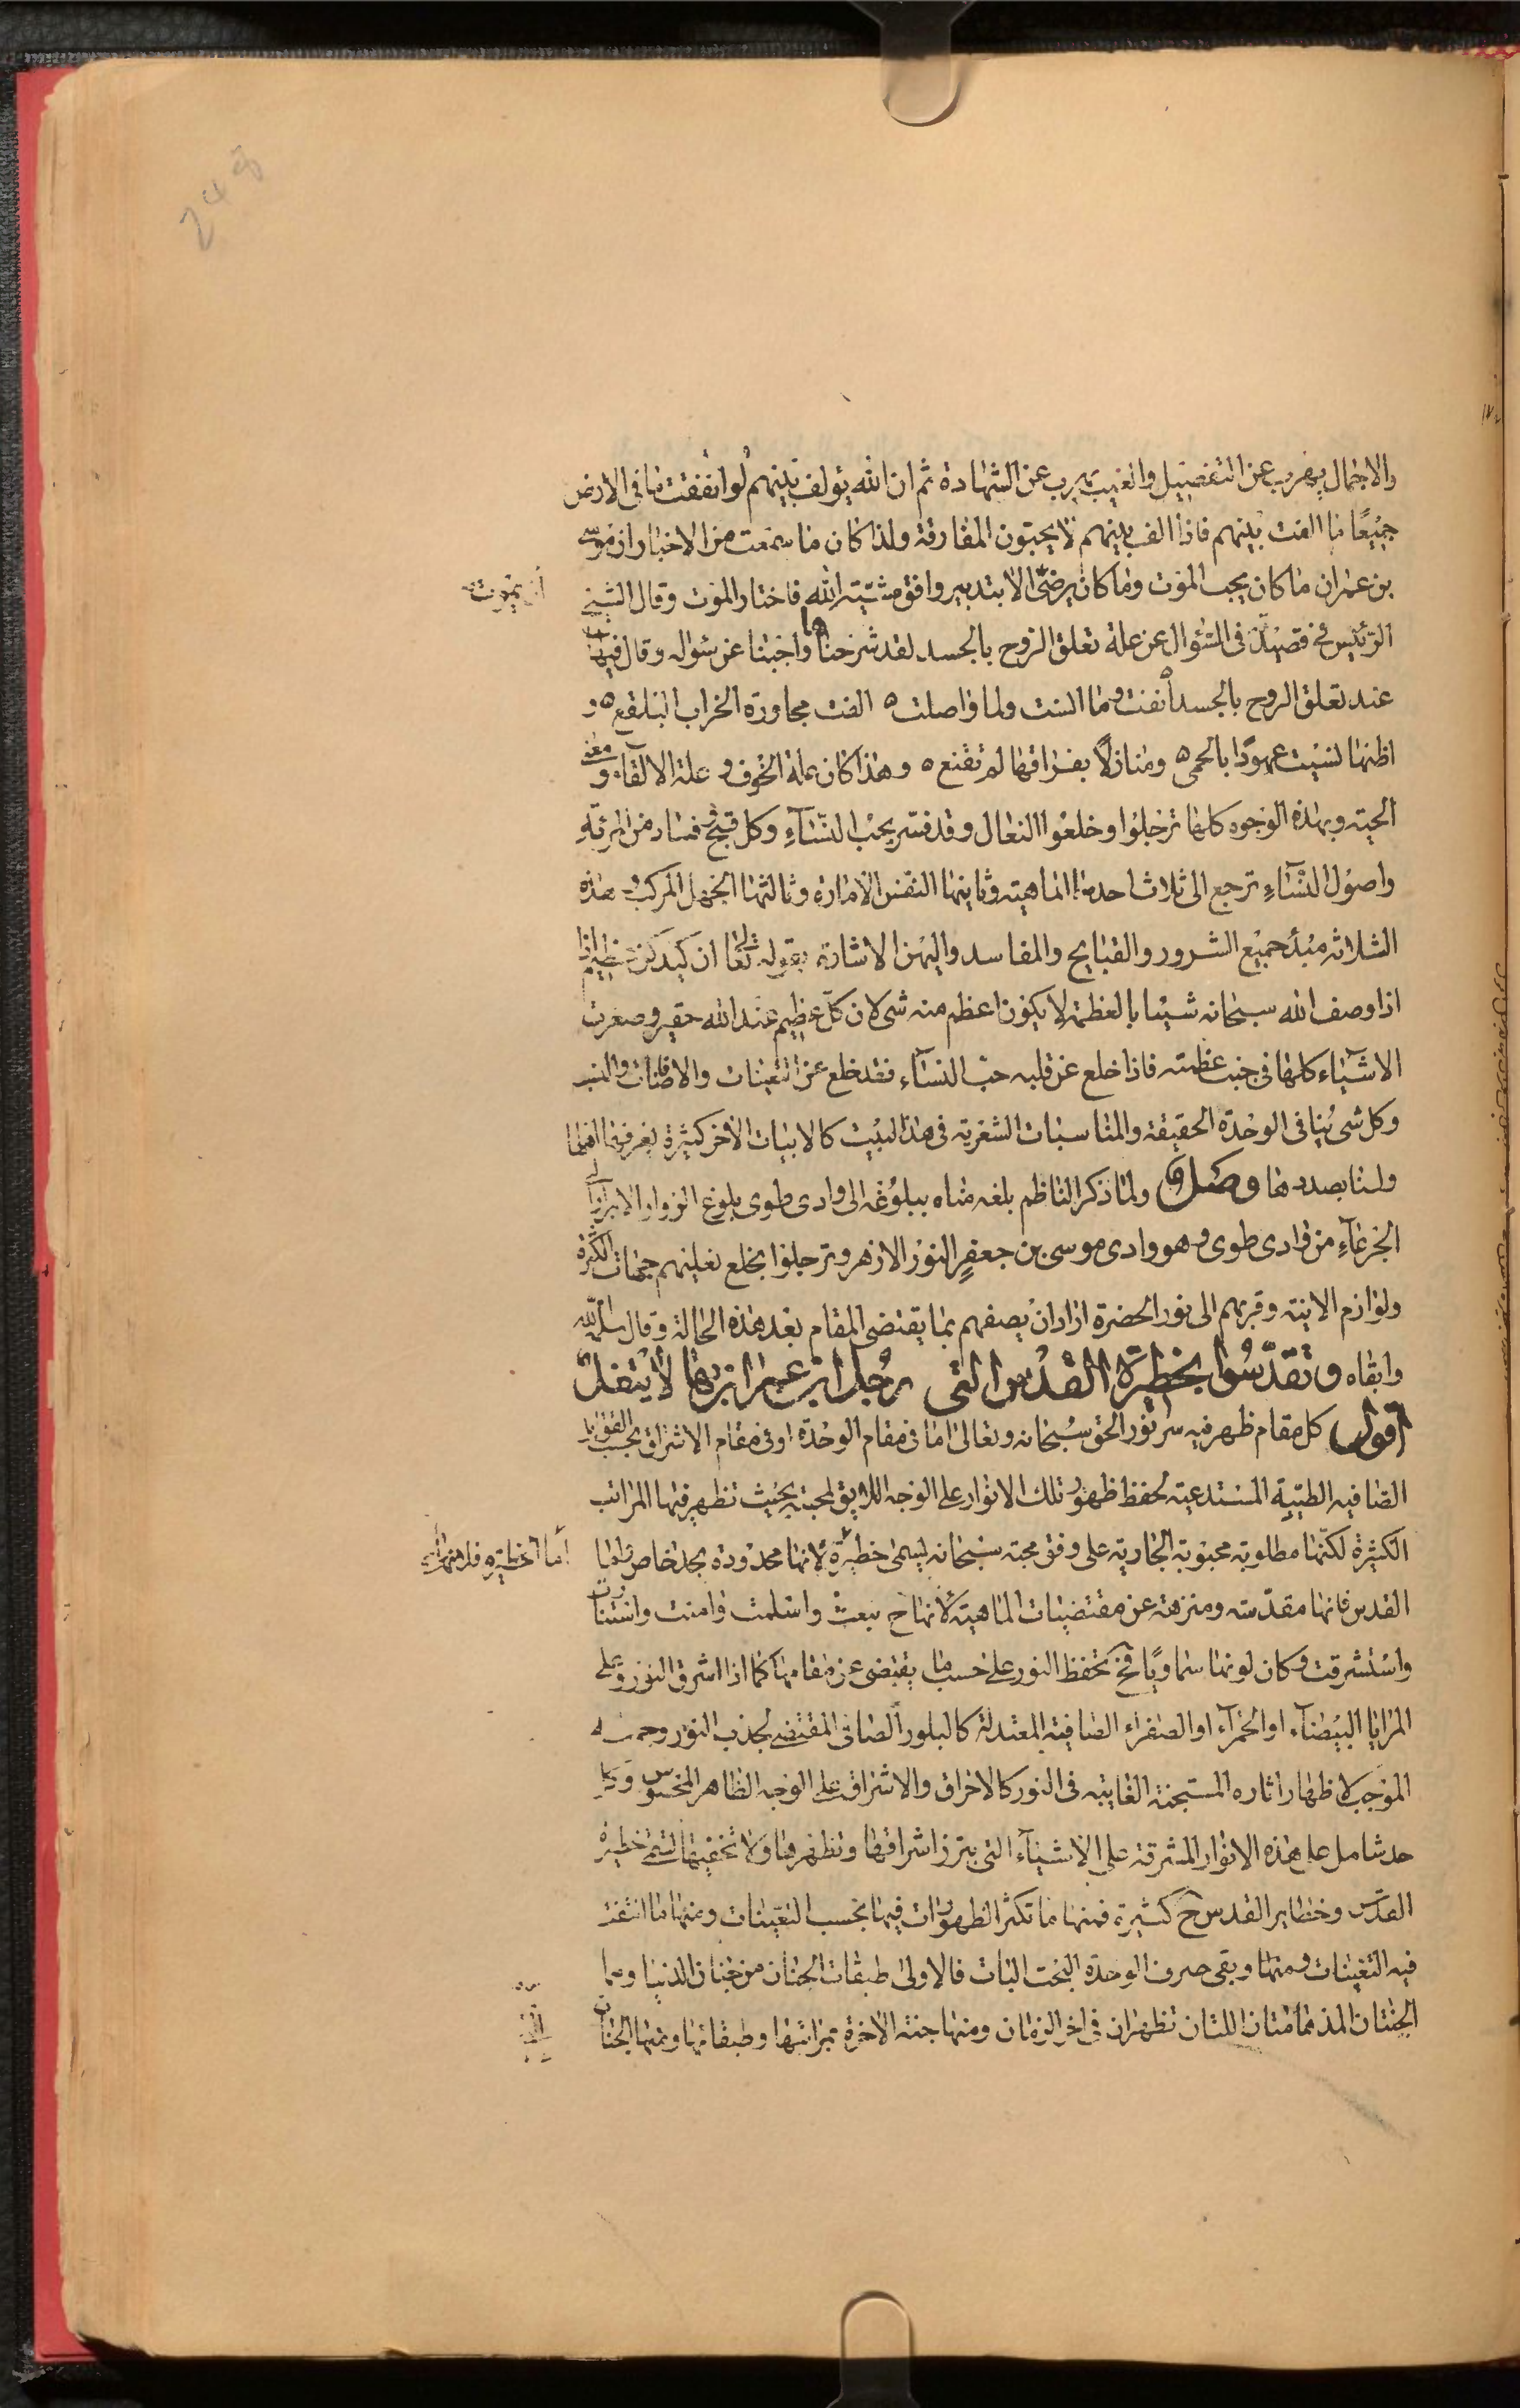 والاجمال يهرب عن التفصيل والغيب يهرب عن الشهادة ثم ان الله يؤلف بينهم لو انفقت ما فى الارض
جميعًا ما الفت بينهم فاذا الف بينهم لا يحبون المفارقة ولذا كان ما سمعت من الاخبار ان موسى
بن عمران ما كان يحب الموت وما كان يرضى الا بتدبير وافق مشيته الله فاختار الموت وقال الشيخ
ان يموت
الرئيس فى قصيدته فى السؤال عن علة تعلق الروح بالجسد لقد شرحناها واجبنا عن سؤاله وقال فيها
عند تعلق الروح بالجسد أنفت وما انست ولما واصلت ه الفت مجاورة الخراب البلقع ه و
اظنها نسيت عهودًا بالحمى ه ومنازلًا بفراقها لم تقنع ه وهذا كان علة الخوف و علة الالقاء و معنى
الحية وبهذه الوجوه كلها ترجلوا وخلعوا النعال وقد فسر بحب النسآء وكل قبيح وفساد من المرئة
واصول النسآء ترجع الى ثلاث احدها الماهية وثانيها النفس الامارة وثالثها الجهل المركب هذه
الثلاثة مبدأ جميع الشرور والقبايح والمفاسد واليهن الاشارة بقوله تعالى ان كيدكن عظيم اذا
اذا وصف الله سبحانه شيئا بالعظمة لا يكون اعظم منه شى لان كل عظيم عند الله حقير وصغرت
الاشيآء كلها فى جنب عظمته فاذا خلع عن قلبه حب النسآء فقد خلع عن التعينات والاضافات والنسب
وكل شى ينافى الوحدة الحقيقة والمناسبات الشعرية فى هذا البيت كالابيات الأخر كثيرة يعرفها اهلها
ولسنا بصددها وصل ولما ذكر الناظم بلغه مناه ببلوغه الى وادى طوى بلوغ الزوار الابرار الى
الجرعآء من وادى طوى وهو وادى موسى بن جعفر النور الازهر وترجلوا بخلع نعليهم جهات الكثرة
ولوازم الانية وقربهم الى نور الحضرة اراد ان يصفهم بما يقتضى المقام بعد هذه الحالة وقال سلمه الله
وابقاه وتقدسوا بحظيرة القدس التى رجل ابن عمران بها لا ينعل
اقول كل مقام ظهر فيه سر نور الحق سبحانه وتعالى اما فى مقام الوحدة او فى مقام الاشراق بحسب القوابل
الصافية الطيبة المستدعية لحفظ ظهور تلك الانوار على الوجه اللايق لمحبته بحيث تظهر فيها المراتب
الكثيرة لكنها مطلوبة محبوبة الجارية على وفق محبته سبحانه ليسمى حظيرة لانها محدودة بحد خاص واما
أما الحظيرة فلانها
القدس فانها مقدسة ومنزهة عن مقتضيات الماهية لأنها ح تبعث واسلمت وامنت واستنارت
واستشرقت وكان لونها سماويًا فح تحفظ النور على حسب ما يقتضى عن مقامها كما اذا اشرق النور على
المرايا البيضآء او الحمرآء او الصفراء الصافية المعتدلة كالبلور الصافى المقتضى لجذب النور وجمعه
الموجب لاظهار اثاره المستجنة الغايبة فى النور كالاحراق والاشراق على الوجه الظاهر المحسوس وكل
حد شامل على هذه الانوار المشرقة على الاشيآء التى يبرز اشراقها وتظهرها ولا تخفيها تسمى حظيرة
القدس وحظاير القدس ح كثيرة فمنها ما تكثر الظهورات فيها بحسب التعينات ومنها ما انتفت
فيه التعينات ومنها وبقى صرف الوحدة البحت البات فالاولى طبقات الجنان من جنان الدنيا وهما
الجنتان المدهامتان اللتان تظهران فى اخر الزمان ومنها جنة الآخرة بمراتبها وطبقاتها ومنها الجنان